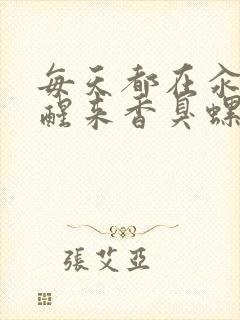 每天都在汆
醒来香臭螺
張艾亞